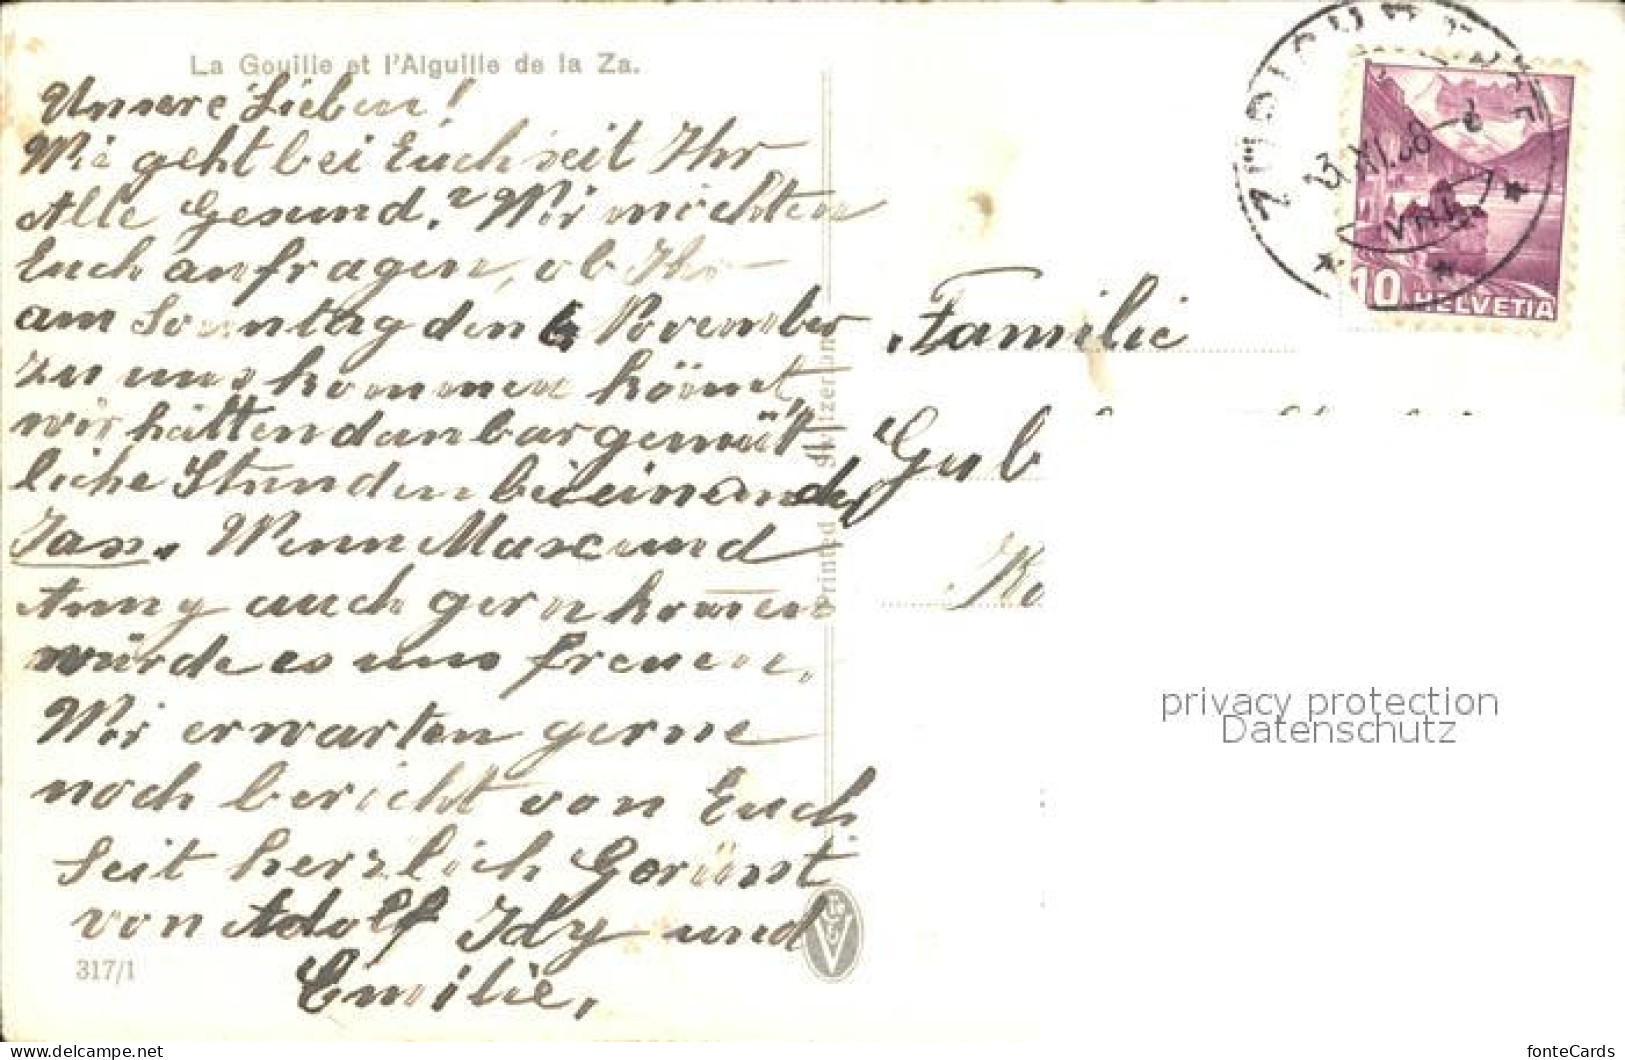 La Gouille et l'Aiguille de la Za.
Unsere Lieben!
Wie geht bei Euch seit Ihr
Alle Gesund.? Wir möchten
Euch anfragen, ob Ihr
am Sonntag den 6 November
zu uns kommen könnt,
wir hätten dan bar gemüt-
liche Stunden beieinander
Jass. Wenn Max und
Anny auch gern kommen
würde es uns freuen.
Wir erwarten gerne
noch bericht von Euch
Seit herzlich Gerüsst
von Adolf Idy und
Emilie.
317/1
Printed Switzerland
Familie
Gub
Ko
3.XI.38
VIII
10 HELVETIA
privacy protection
Datenschutz
fonteCards
www.delcampe.net